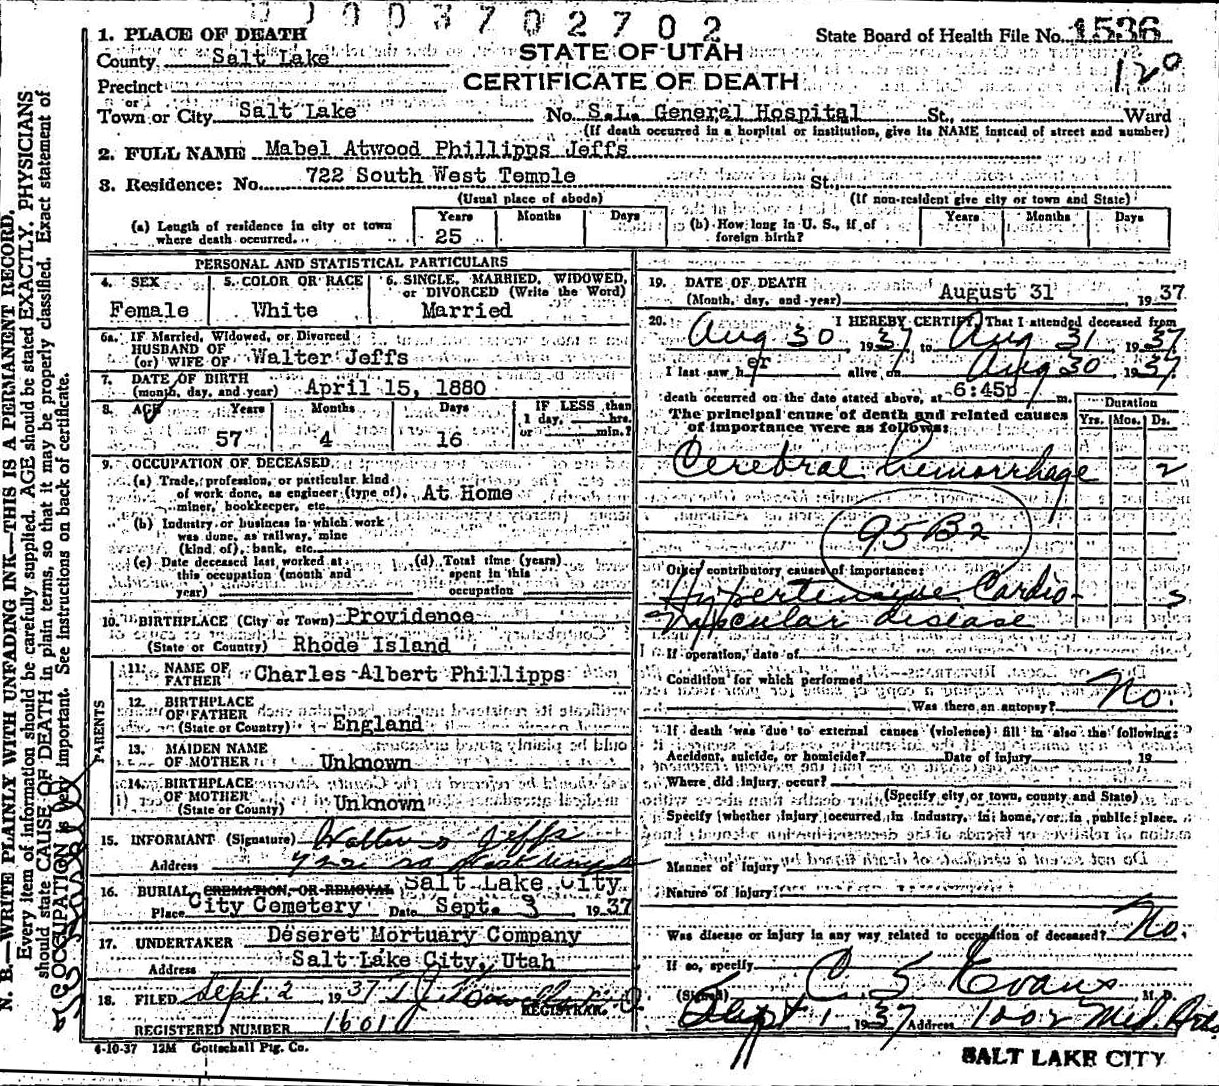 003702702
1. PLACE OF DEATH
State Board of Health File No. 1536
County Salt Lake
STATE OF UTAH
120
Precinct
CERTIFICATE OF DEATH
or
Town or City Salt Lake No. S.L. General Hospital St., Ward
(If death occurred in a hospital or institution, give its NAME instead of street and number)
2. FULL NAME Mabel Atwood Phillipps Jeffs
3. Residence: No. 722 South West Temple St.,
(Usual place of abode) (If non-resident give city or town and State)
(a) Length of residence in city or town where death occurred. Years 25 Months Days
(b) How long in U. S., if of foreign birth? Years Months Days
PERSONAL AND STATISTICAL PARTICULARS
4. SEX 5. COLOR OR RACE 6. SINGLE, MARRIED, WIDOWED, or DIVORCED (Write the Word)
Female White Married
6a. IF Married, Widowed, or Divorced
HUSBAND OF
(or) WIFE OF Walter Jeffs
7. DATE OF BIRTH
(month, day, and year) April 15, 1880
8. AGE Years Months Days IF LESS than
1 day, hrs.
57 4 16 or min.?
9. OCCUPATION OF DECEASED
(a) Trade, profession, or particular kind
of work done, as engineer (type of), At Home
miner, bookkeeper, etc.
(b) Industry or business in which work
was done, as railway, mine
(kind of), bank, etc.
(c) Date deceased last worked at (d) Total time (years)
this occupation (month and spent in this
year) occupation
10. BIRTHPLACE (City or Town) Providence
(State or Country) Rhode Island
PARENTS
11. NAME OF
FATHER Charles Albert Phillipps
12. BIRTHPLACE
OF FATHER England
(State or Country)
13. MAIDEN NAME
OF MOTHER Unknown
14. BIRTHPLACE
OF MOTHER Unknown
(State or County)
15. INFORMANT (Signature) Walter Jeffs
Address 722 So West Temple
16. BURIAL, CREMATION, OR REMOVAL Salt Lake City
Place City Cemetery Date Sept. 3 1937
17. UNDERTAKER Deseret Mortuary Company
Address Salt Lake City, Utah
18. FILED Sept. 2, 1937
REGISTRAR.
REGISTERED NUMBER 1601
4-10-37 12M Gottschall Ptg. Co.
19. DATE OF DEATH
(Month, day, and year) August 31 1937
20. I HEREBY CERTIFY, That I attended deceased from
Aug 30 1937 to Aug 31 1937
I last saw her alive on Aug 30 1937
death occurred on the date stated above, at 6:45p m.
Duration
The principal cause of death and related causes
of importance were as follows: Yrs. Mos. Ds.
Cerebral hemorrhage 2
95B2
Other contributory causes of importance:
Hypertensive Cardio-
Vascular disease
If operation, date of
Condition for which performed
Was there an autopsy? No.
If death was due to external causes (violence) fill in also the following:
Accident, suicide, or homicide? Date of injury 19
Where did injury occur?
(Specify city or town, county and State)
Specify whether injury occurred in industry, in home, or in public place.
Manner of Injury
Nature of injury
Was disease or injury in any way related to occupation of deceased? No.
If so, specify
(Signed) C. S. Evans M. D.
Sept 1 1937 Address 1002 Med. Arts
SALT LAKE CITY
N. B.—WRITE PLAINLY WITH UNFADING INK—THIS IS A PERMANENT RECORD.
Every item of information should be carefully supplied. AGE should be stated EXACTLY. PHYSICIANS
should state CAUSE OF DEATH in plain terms, so that it may be properly classified. Exact statement of
OCCUPATION is very important. See instructions on back of certificate.